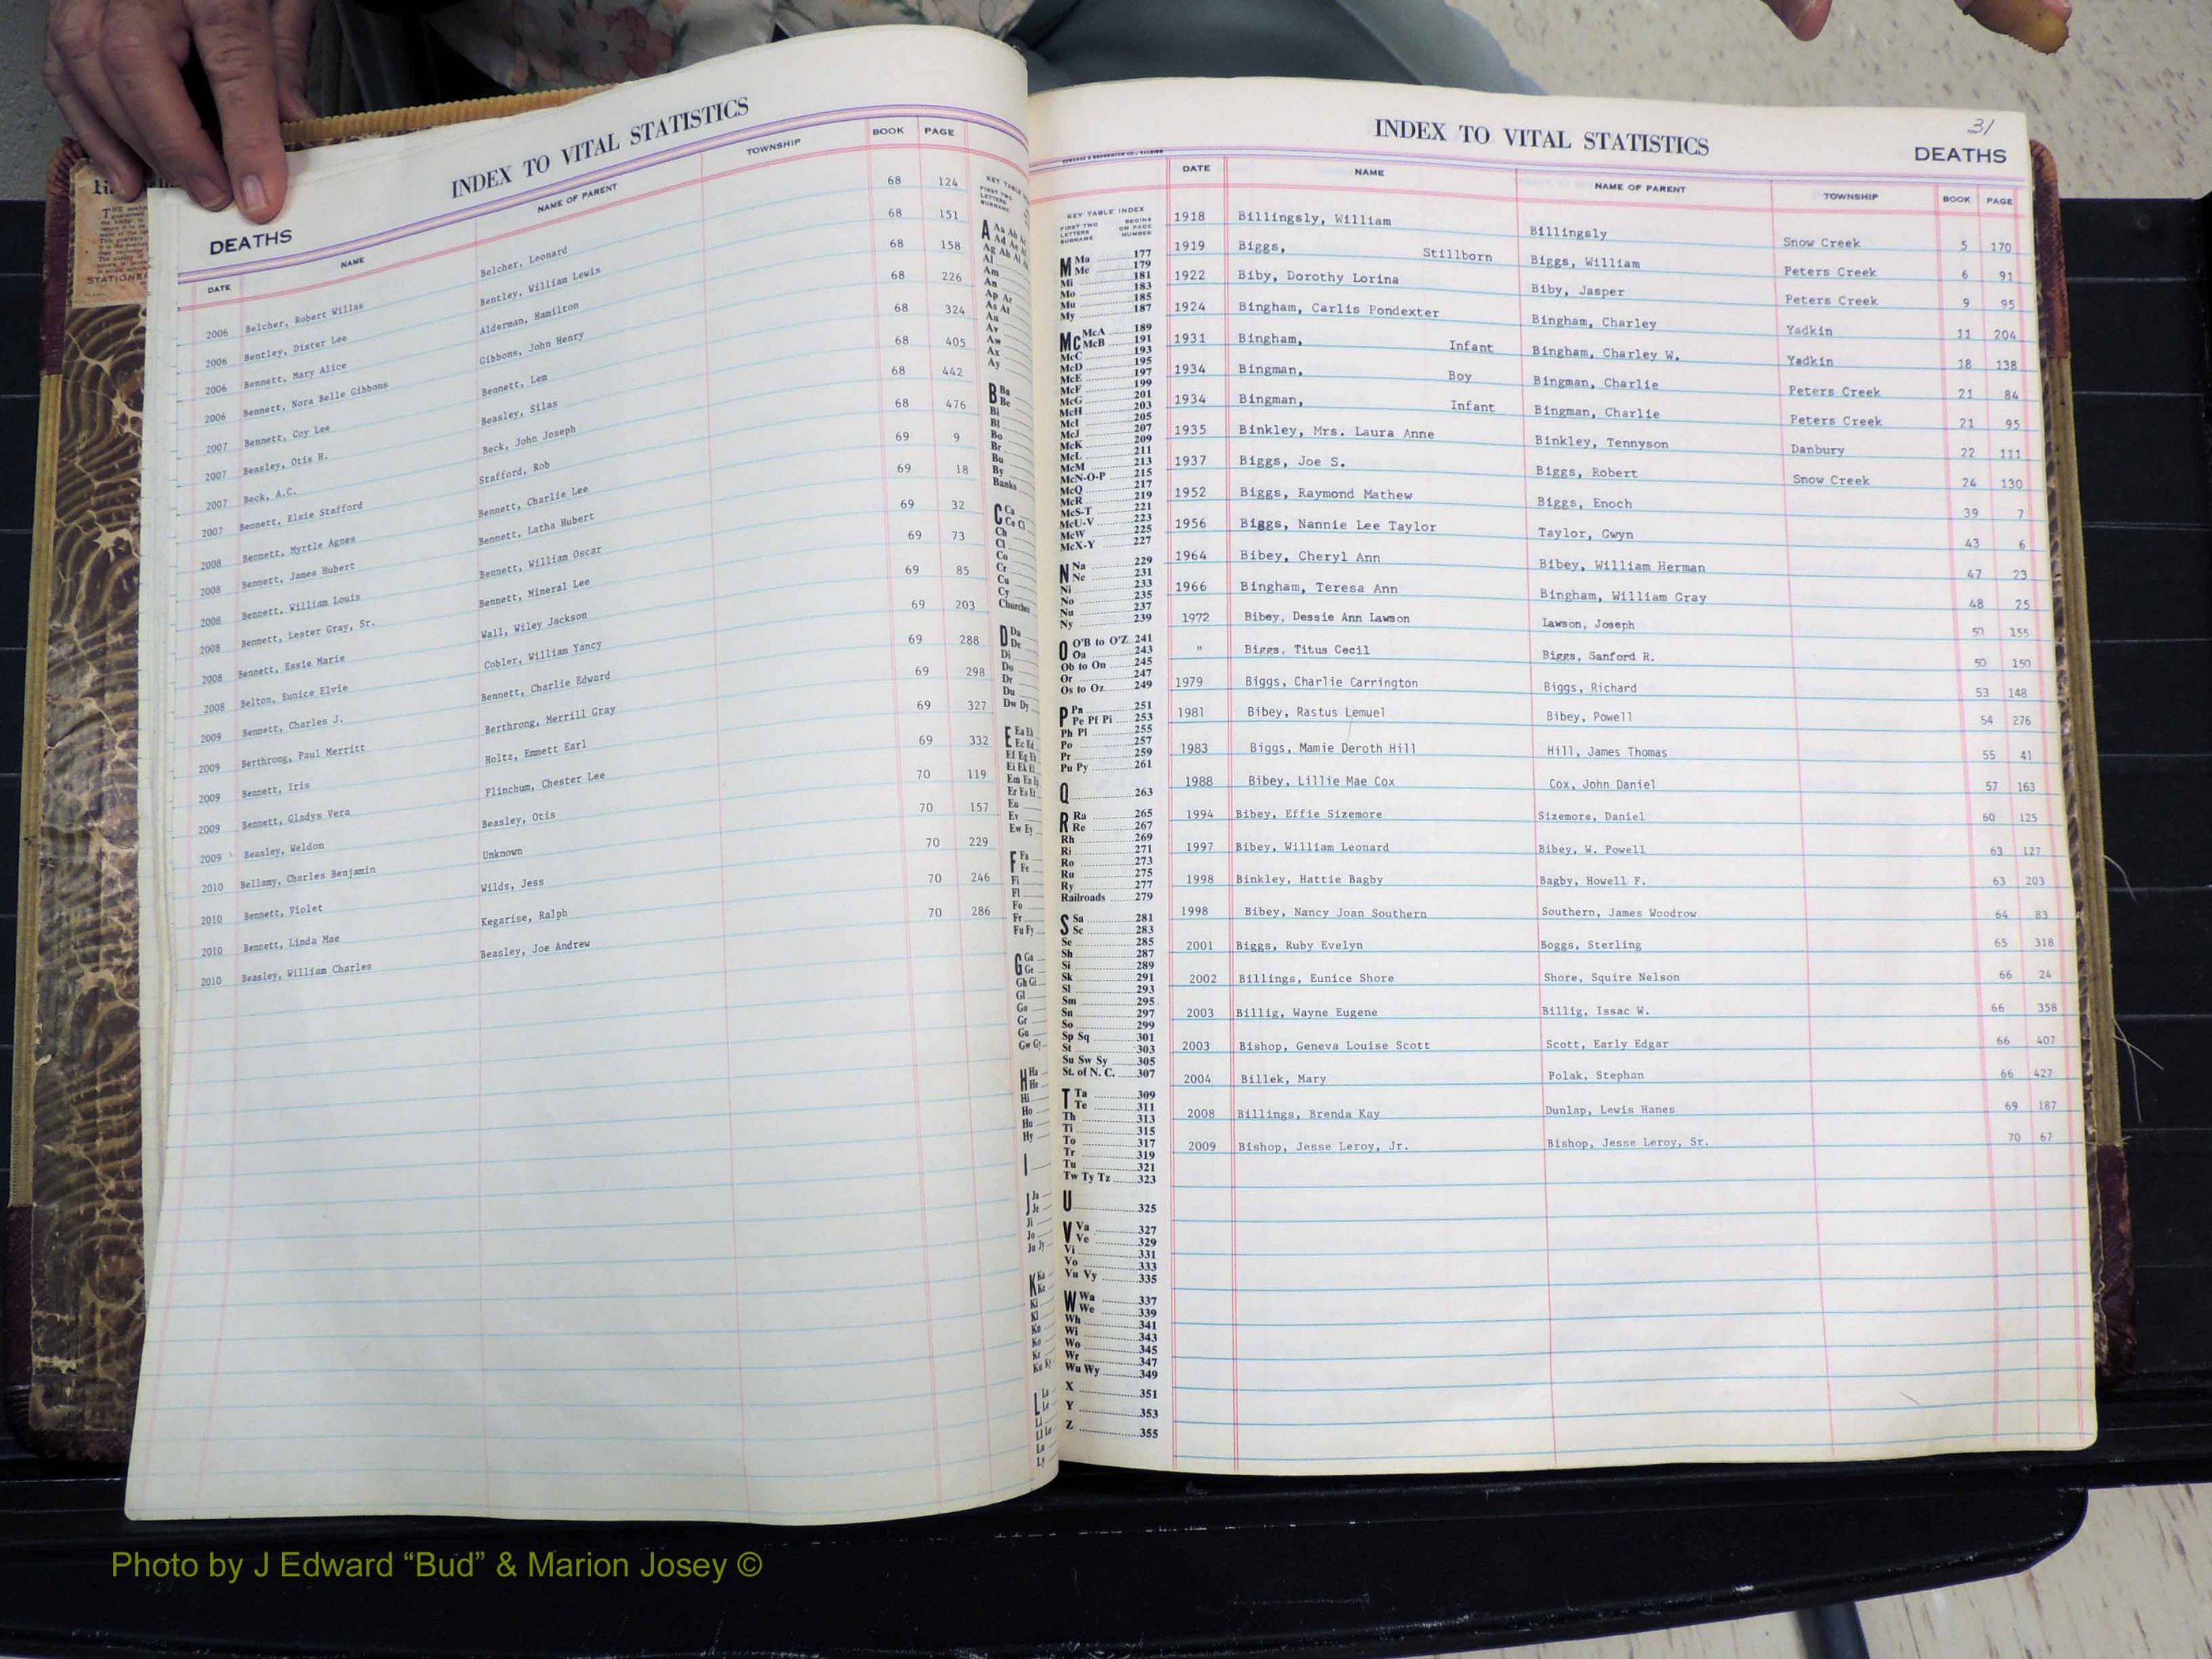 INDEX TO VITAL STATISTICS
DEATHS
DATE NAME NAME OF PARENT TOWNSHIP BOOK PAGE
2006 Belcher, Robert Willas Belcher, Leonard 68 124
2006 Bentley, Dixter Lee Bentley, William Lewis 68 151
2006 Bennett, Mary Alice Alderman, Hamilton 68 158
2006 Bennett, Nora Belle Gibbons Gibbons, John Henry 68 226
2007 Bennett, Coy Lee Bennett, Lem 68 324
2007 Beasley, Otis H. Beasley, Silas 68 405
2007 Beck, A.C. Beck, John Joseph 68 442
2007 Bennett, Elsie Stafford Stafford, Rob 68 476
2008 Bennett, Myrtle Agnes Bennett, Charlie Lee 69 9
2008 Bennett, James Hubert Bennett, Latha Hubert 69 18
2008 Bennett, William Louis Bennett, William Oscar 69 32
2008 Bennett, Lester Gray, Sr. Bennett, Mineral Lee 69 73
2008 Bennett, Essie Marie Wall, Wiley Jackson 69 85
2008 Belton, Eunice Elvie Cobler, William Yancy 69 203
2009 Bennett, Charles J. Bennett, Charlie Edward 69 288
2009 Berthrong, Paul Merritt Berthrong, Merrill Gray 69 298
2009 Bennett, Iris Holtz, Emmett Earl 69 327
2009 Bennett, Gladys Vera Flinchum, Chester Lee 69 332
2009 Beasley, Weldon Beasley, Otis 70 119
2010 Bellamy, Charles Benjamin Unknown 70 157
2010 Bennett, Violet Wilds, Jess 70 229
2010 Bennett, Linda Mae Kegarise, Ralph 70 246
2010 Beasley, William Charles Beasley, Joe Andrew 70 286
31
INDEX TO VITAL STATISTICS
DEATHS
DATE NAME NAME OF PARENT TOWNSHIP BOOK PAGE
1918 Billingsly, William Billingsly Snow Creek 5 170
1919 Biggs, Stillborn Biggs, William Peters Creek 6 91
1922 Biby, Dorothy Lorina Biby, Jasper Peters Creek 9 95
1924 Bingham, Carlis Pondexter Bingham, Charley Yadkin 11 204
1931 Bingham, Infant Bingham, Charley W. Yadkin 18 138
1934 Bingman, Boy Bingman, Charlie Peters Creek 21 84
1934 Bingman, Infant Bingman, Charlie Peters Creek 21 95
1935 Binkley, Mrs. Laura Anne Binkley, Tennyson Danbury 22 111
1937 Biggs, Joe S. Biggs, Robert Snow Creek 24 130
1952 Biggs, Raymond Mathew Biggs, Enoch 39 7
1956 Biggs, Nannie Lee Taylor Taylor, Gwyn 43 6
1964 Bibey, Cheryl Ann Bibey, William Herman 47 23
1966 Bingham, Teresa Ann Bingham, William Gray 48 25
1972 Bibey, Dessie Ann Lawson Lawson, Joseph 50 155
" Biggs, Titus Cecil Biggs, Sanford R. 50 150
1979 Biggs, Charlie Carrington Biggs, Richard 53 148
1981 Bibey, Rastus Lemuel Bibey, Powell 54 276
1983 Biggs, Mamie Deroth Hill Hill, James Thomas 55 41
1988 Bibey, Lillie Mae Cox Cox, John Daniel 57 163
1994 Bibey, Effie Sizemore Sizemore, Daniel 60 125
1997 Bibey, William Leonard Bibey, W. Powell 63 127
1998 Binkley, Hattie Bagby Bagby, Howell F. 63 203
1998 Bibey, Nancy Joan Southern Southern, James Woodrow 64 83
2001 Biggs, Ruby Evelyn Boggs, Sterling 65 318
2002 Billings, Eunice Shore Shore, Squire Nelson 66 24
2003 Billig, Wayne Eugene Billig, Issac W. 66 358
2003 Bishop, Geneva Louise Scott Scott, Early Edgar 66 407
2004 Billek, Mary Polak, Stephan 66 427
2008 Billings, Brenda Kay Dunlap, Lewis Hanes 69 187
2009 Bishop, Jesse Leroy, Jr. Bishop, Jesse Leroy, Sr. 70 67
KEY TABLE INDEX
FIRST TWO LETTERS SURNAME BEGINS ON PAGE NUMBER
M Ma 177
Me 179
Mi 181
Mo 183
Mu 185
My 187
Mc McA 189
McB 191
McC 193
McD 195
McE 197
McF 199
McG 201
McH 203
McI 205
McJ 207
McK 209
McL 211
McM 213
McN-O-P 215
McQ 217
McR 219
McS-T 221
McU-V 223
McW 225
McX-Y 227
N Na 229
Ne 231
Ni 233
No 235
Nu 237
Ny 239
O O'B to O'Z 241
Oa 243
Ob to On 245
Or 247
Os to Oz 249
P Pa 251
Pe Pf Pi 253
Ph Pl 255
Po 257
Pr 259
Pu Py 261
Q 263
R Ra 265
Re 267
Rh 269
Ri 271
Ro 273
Ru 275
Ry 277
Railroads 279
S Sa 281
Sc 283
Se 285
Sh 287
Si 289
Sk 291
Sl 293
Sm 295
Sn 297
So 299
Sp Sq 301
St 303
Su Sw Sy 305
St. of N. C. 307
T Ta 309
Te 311
Th 313
Ti 315
To 317
Tr 319
Tu 321
Tw Ty Tz 323
U 325
V Va 327
Ve 329
Vi 331
Vo 333
Vu Vy 335
W Wa 337
We 339
Wh 341
Wi 343
Wo 345
Wr 347
Wu Wy 349
X 351
Y 353
Z 355
Photo by J Edward “Bud” & Marion Josey ©